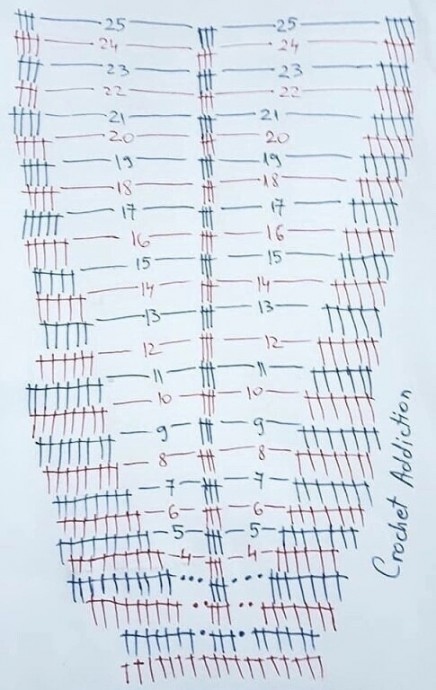 25 25
24 24
23 23
22 22
21 21
20 20
19 19
18 18
17 17
16 16
15 15
14 14
13 13
12 12
11 11
10 10
9 9
8 8
7 7
6 6
5 5
4 4
Crochet Addiction